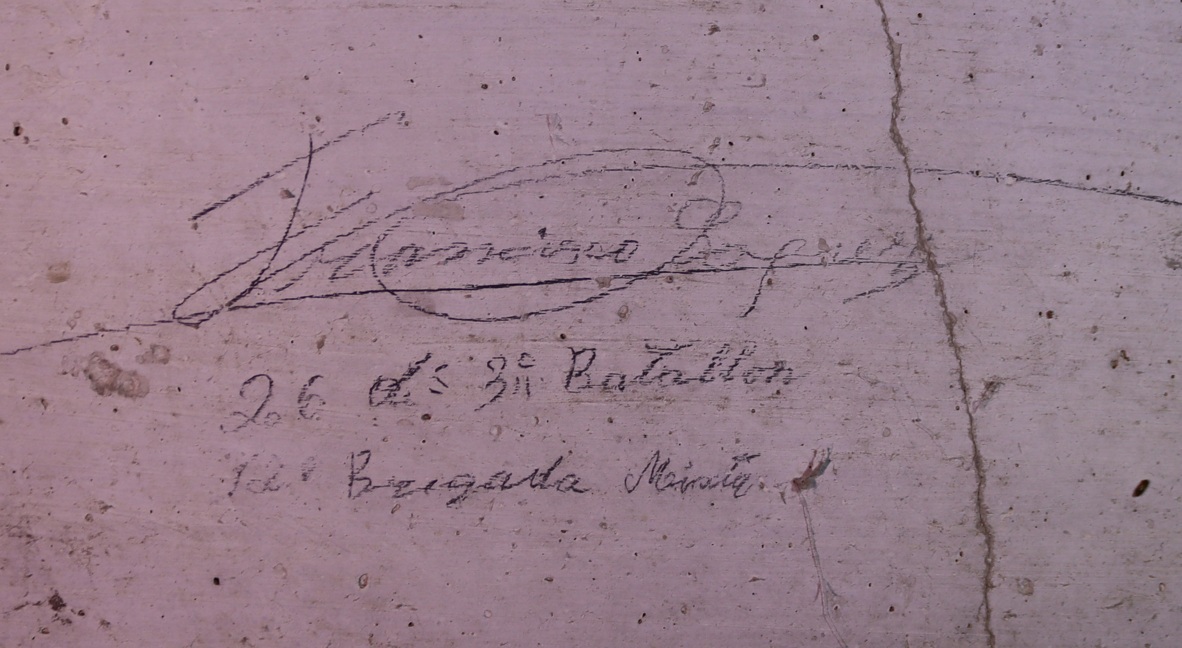 Francisco
26 d: 3ª Batallon
Brigada Mixta